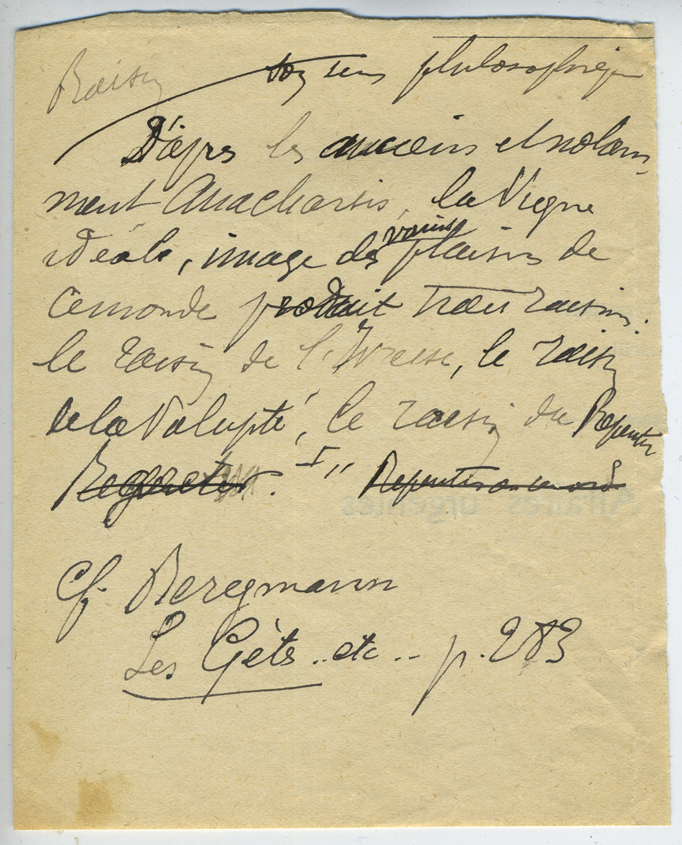 Raisin son sens philosophique
D'après les anciens et notam-
ment Anacharsis, la Vigne
idéale, image des vains plaisirs de
ce monde produit trois raisins:
le raisin de l'Ivresse, le raisin
de la Volupté, le raisin du Repentir
Cf. Bergmann
Les Gètes .. etc .. p. 283
Affaires urgentes